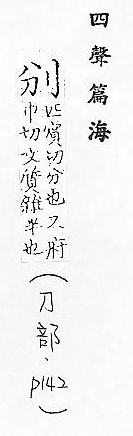 四聲篇海
匹賓切分也又府
巾切文質雜半也
（刀部、p142）